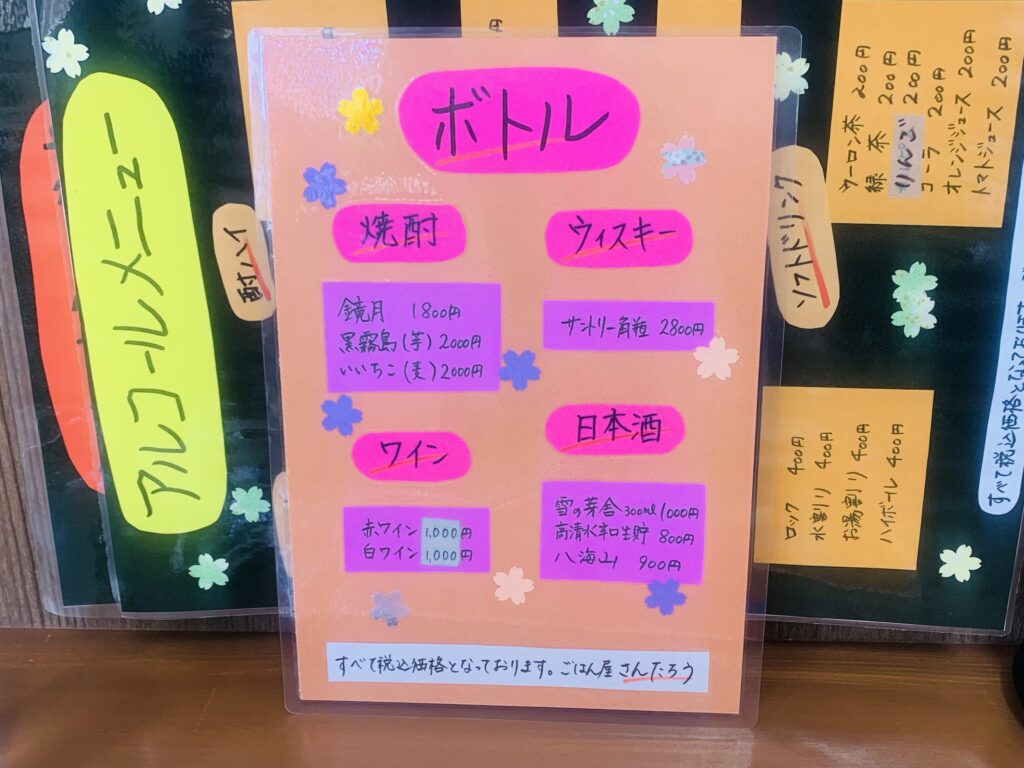 ボトル
焼酎
鏡月 1800円
黒霧島(芋)2000円
いいちこ(麦)2000円
ウィスキー
サントリー角瓶 2800円
ワイン
赤ワイン 1,000円
白ワイン 1,000円
日本酒
雪の芽舎300ml 1000円
高清水和生貯 800円
八海山 900円
すべて税込価格となっております。ごはん屋さんたろう
アルコールメニュー
酎ハイ
ソフトドリンク
ウーロン茶 200円
緑茶 200円
りんご 200円
コーラ 200円
オレンジジュース 200円
トマトジュース 200円
ロック 400円
水割り 400円
お湯割り 400円
ハイボール 400円
すべて税込価格となっており